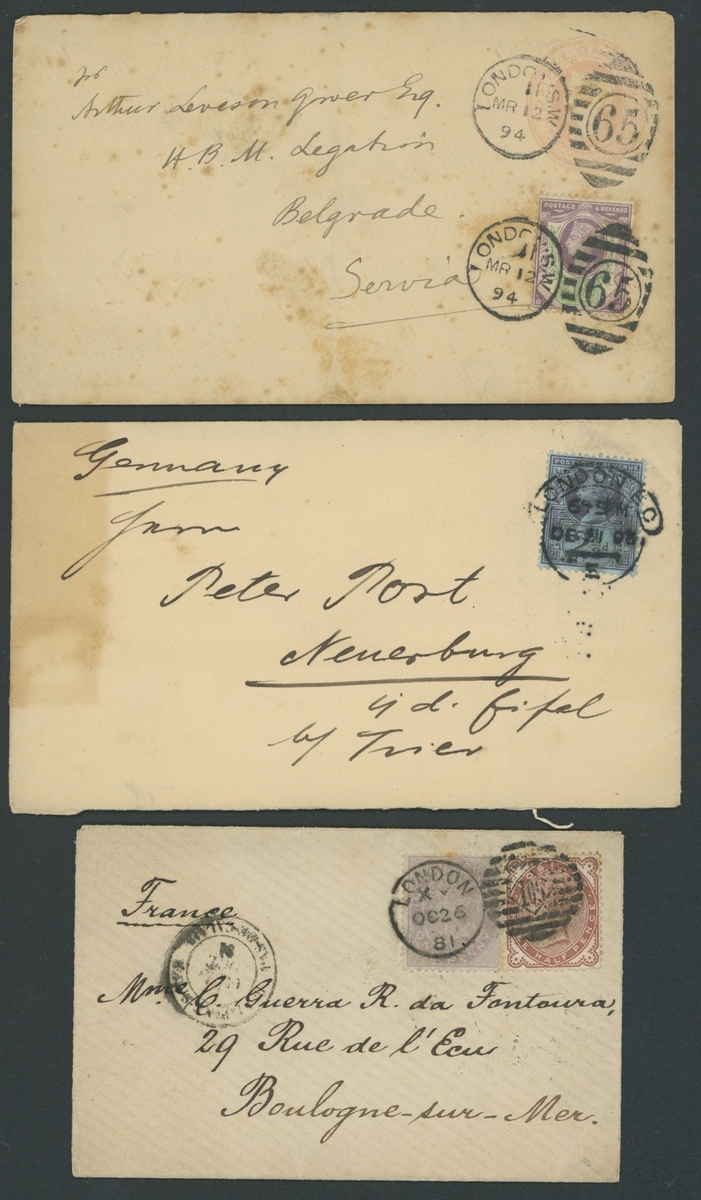 Arthur Leveson Gower Esq.
H.B.M. Legation
Belgrade.
Servia
LONDON.S.W
MR 12
94
65
POSTAGE & REVENUE
LONDON.S.W
MR 12
94
Germany
Herrn
Peter Post
Neuerburg
i/d. Eifel
b/ Trier
LONDON E.C
France
LONDON
X
OC 26
81
HALF PENCE
Mme C. Guerra R. da Fontoura,
29 Rue de l'Ecu
Boulogne-sur-Mer.